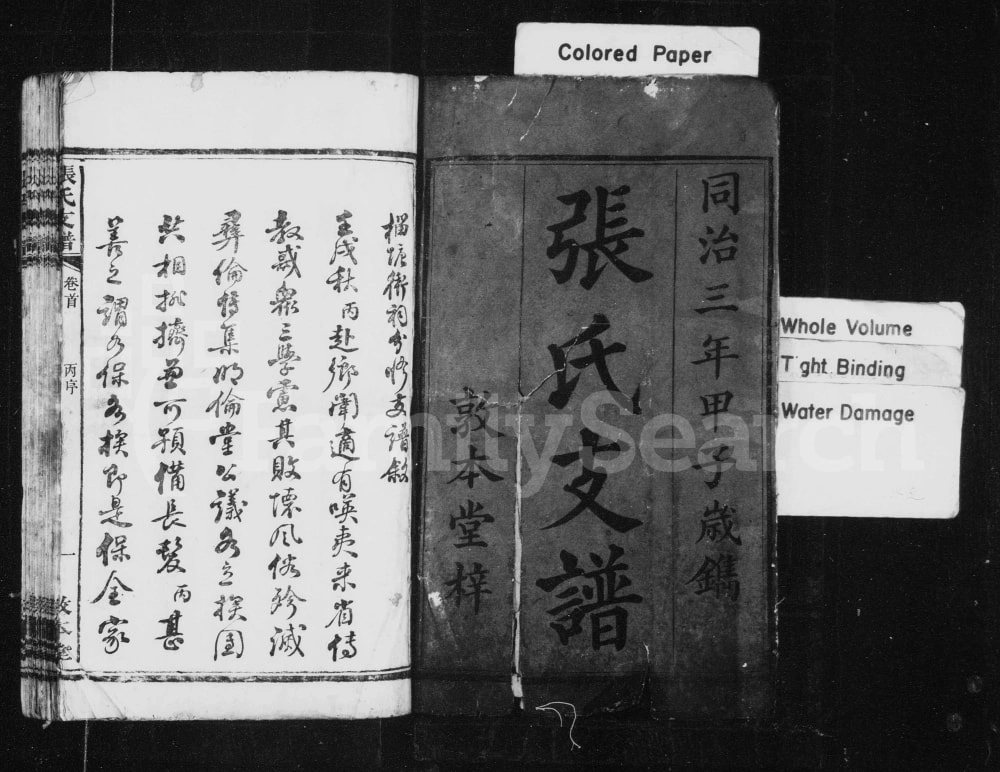 Colored Paper
Whole Volume
Tight Binding
Water Damage
同治三年甲子歲鐫
張氏支譜
敦本堂梓
榴塘衛祠分修支譜敘
壬戌秋丙赴鄉闈適有嘆夷来省傳
教惑眾三學憲其敗壞風俗殄滅
彝倫特集明倫堂公議各立撲團
共相排擠並可預備長髮丙甚
善之謂各保各撲即是保全家
張氏支譜
卷首
丙序
一
敦本堂
FamilySearch